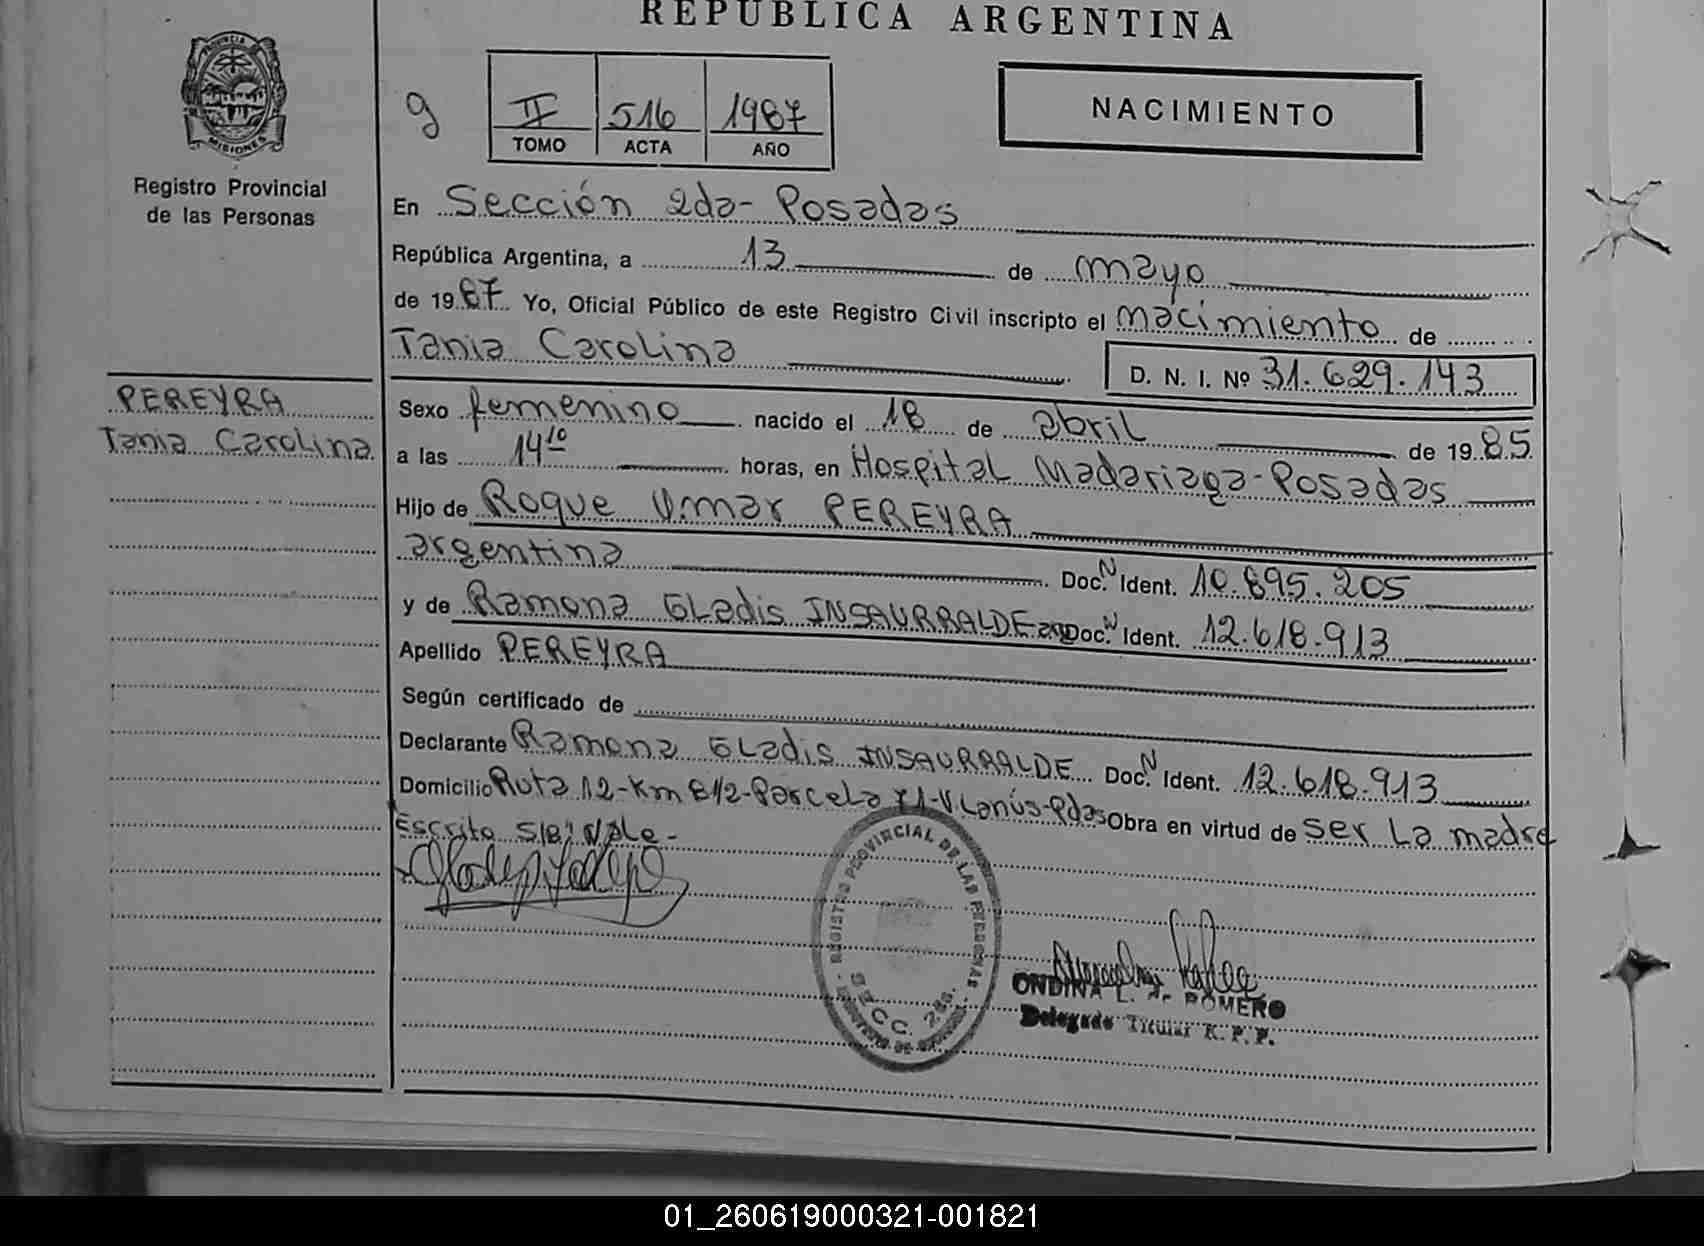 REPUBLICA ARGENTINA
PROVINCIA DE
MISIONES
Registro Provincial
de las Personas
g
II 516 1987
TOMO ACTA AÑO
NACIMIENTO
En Sección 2da- Posadas
República Argentina, a 13 de mayo
de 1987 Yo, Oficial Público de este Registro Civil inscripto el nacimiento de
Tania Carolina
D. N. I. Nº 31.629.143
PEREYRA
Tania Carolina
Sexo femenino nacido el 18 de abril de 1985
a las 14 10 horas, en Hospital Madariaga-Posadas
Hijo de Roque Omar PEREYRA
argentina Doc. N Ident. 10.895.205
y de Ramona Gladis INSAURRALDE Doc. N Ident. 12.618.913
Apellido PEREYRA
Según certificado de
Declarante Ramona Gladis INSAURRALDE Doc. N Ident. 12.618.913
Domicilio Ruta 12-Km 8 1/2-Parcela -V. Lanús-Pdas Obra en virtud de ser La madre
Escrito S/B: Vale-
REGISTRO PROVINCIAL DE LAS PERSONAS
SECC. 2da.
ONDINA L. de ROMERO
Delegado Titular R. P. P.
01_260619000321-001821